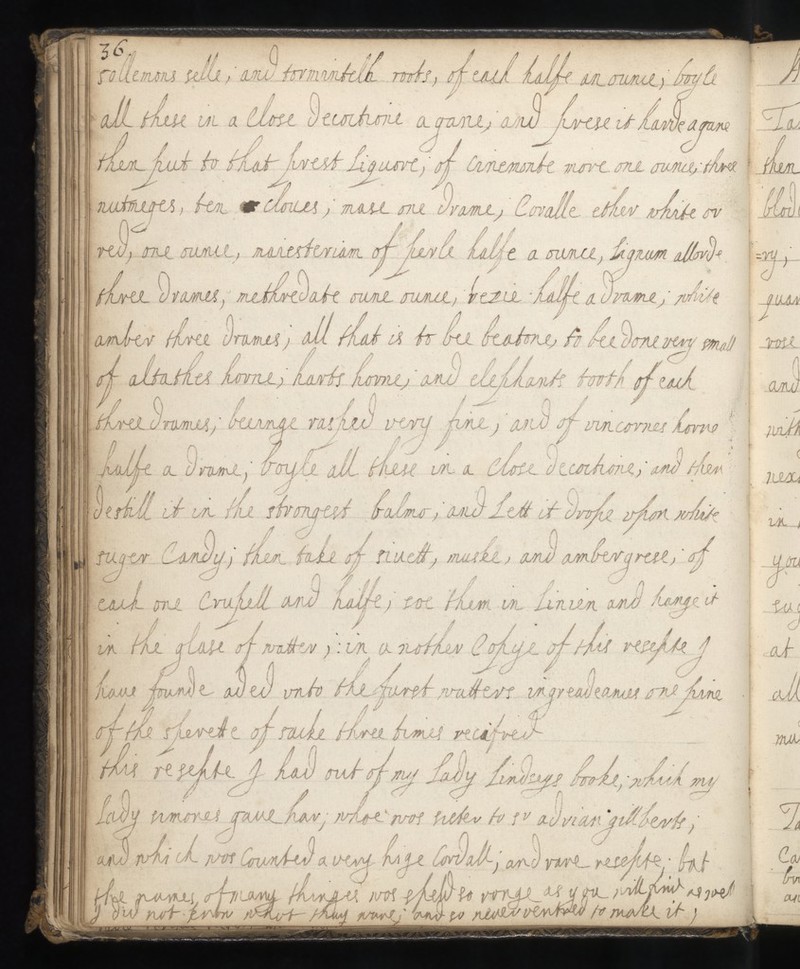 36.
sollemons selle, and tormintell roots, of each halfe an ounce; boyle
all these in a Close Decoctione agane; and prese it harde agane
then put to that prest Liquore; of Cinemonte more one ounce; three
nutmeges, ten cloues; mase one drame, Coralle ether white or
red, one ounce, maiesteriam of perle halfe a ounce, Lignum allord
three drames, methredate oune ounce, bezie halfe a drame, white
amber three drames; all that is to bee beatone, to bee done very small
of altathes horne; harts horne; and elephants tooth of each
three drames; beeinge rasped very fine; and of vincornes horne
halfe a drame; boyle all these in a Close decoctione; and then
destill it in the strongest balmo; and Lett it drope vpon white
suger Candy; then take of siuett, muske, and ambergrese, of
each one Crupell and halfe; soe them in Linien and hange it
in the glase of watter; :in a nother Copye of this resepte I
haue founde aded vnto the furst watters ingreadeances one pine
of the sperette of sacke three times recifved
this resepte I had out of my Lady Lindseys booke; which my
Lady simones gaue har; whoe wos sister to sr adrian gillberts;
and which wos Counted a very hige Cordall; and rare resepte; bat
the names of many thinges wos spelld so ronge as you will find as well
I did not know what thay ware; and so neuer ventred to make it;
Ta
then
blod
=ry;
quar
rose
and
with
nex
in
you
sug
at
all
mu
Ta
Ca